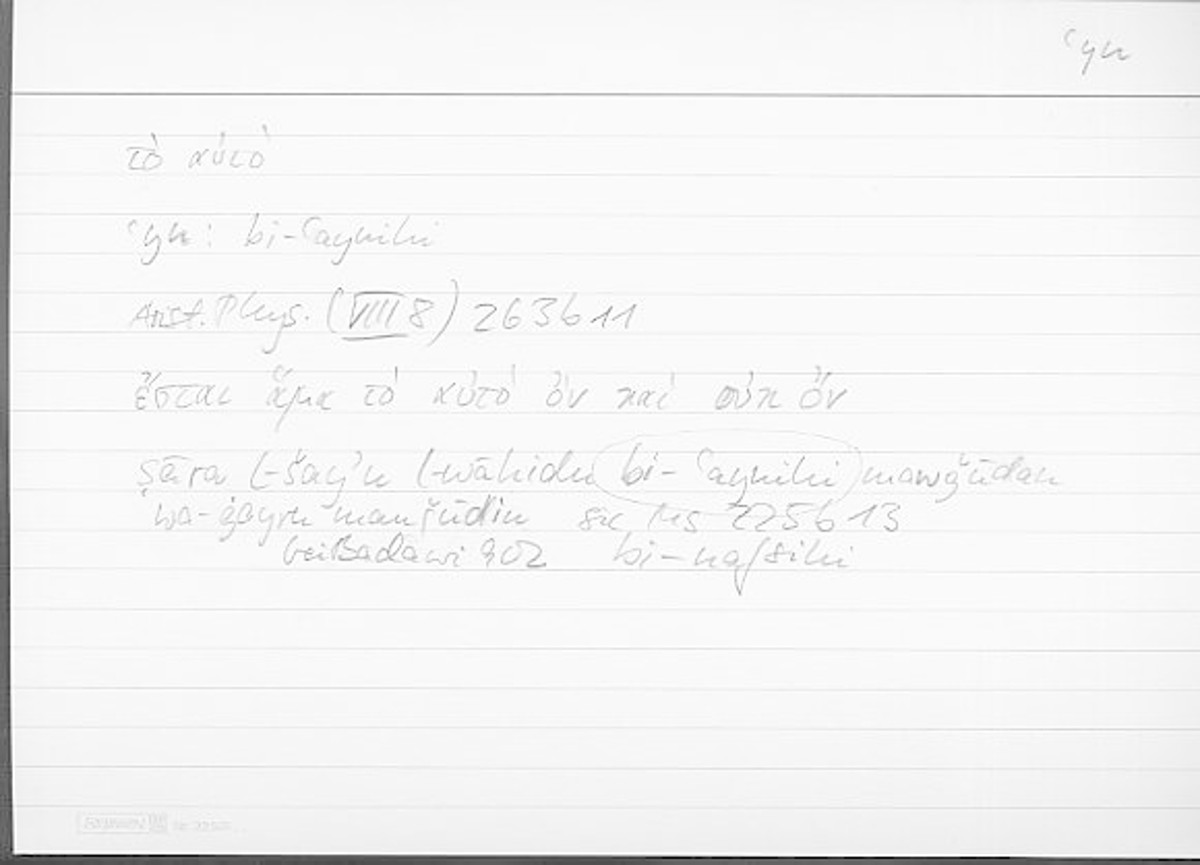 ʿyn
τὸ αὐτὸ
ʿyn: bi-ʿaynihi
Arist. Phys. (VIII 8) 263b11
ἔσται ἅμα τὸ αὐτὸ ὂν καὶ οὐκ ὄν
ṣāra l-šayʾu l-wāḥidu bi-ʿaynihi mawǧūdan
wa-ġayru mawǧūdin sic Ms 225b13
bei Badawi 902 bi-nafsihi